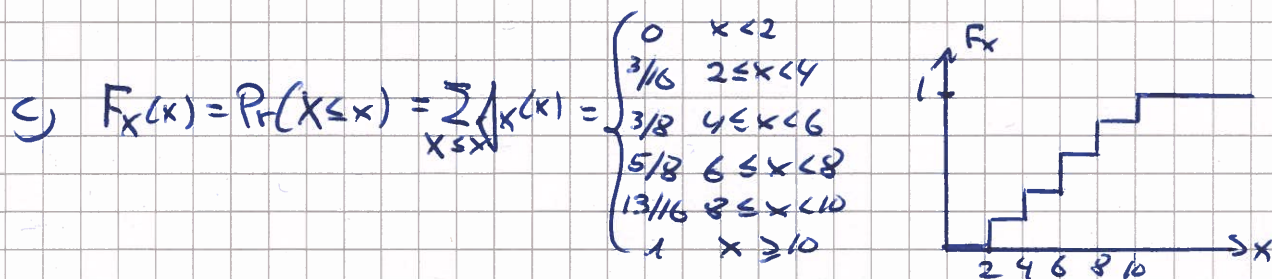 c) F_X(x) = Pr(X ≤ x) = Σ_{X≤x} f_X(x) = {
0 x < 2
3/16 2 ≤ x < 4
3/8 4 ≤ x < 6
5/8 6 ≤ x < 8
13/16 8 ≤ x < 10
1 x ≥ 10
F_X
1
2 4 6 8 10 x